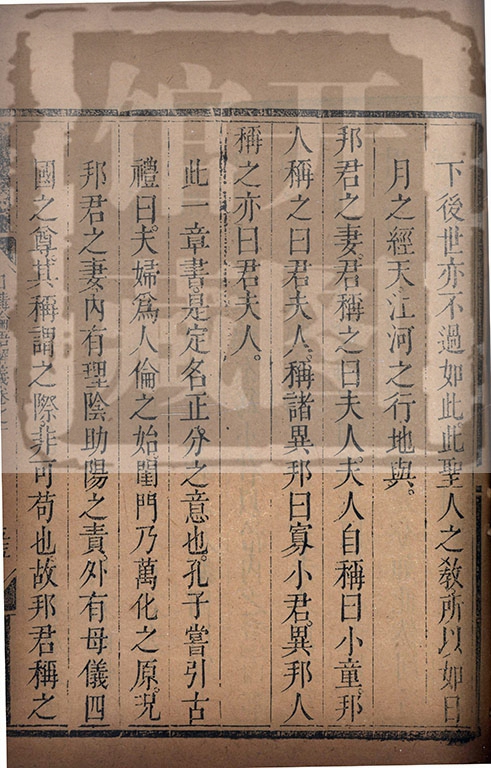 下後世亦不過如此此聖人之敎所以如日
月之經天江河之行地與。
邦君之妻。君稱之曰夫人。夫人自稱曰小童。邦
人稱之曰君夫人。稱諸異邦曰寡小君。異邦人
稱之亦曰君夫人。
此一章書。是定名正分之意也。孔子嘗引古
禮曰。夫婦爲人倫之始。閨門乃萬化之原。況
邦君之妻。內有理陰助陽之責。外有母儀四
國之尊。其稱謂之際。非可苟也。故邦君稱之
日講